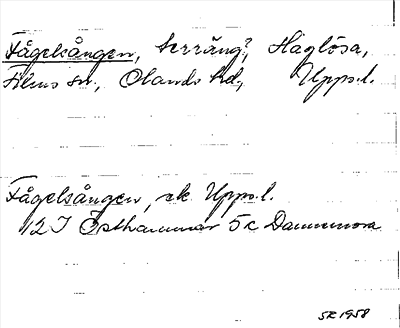 Fågelsången, terräng?, Häglösa,
Films sn., Olands hd., Upps.l.
Fågelsången, ek Upps.l.
12 I Östhammar 5c Dannemora
SR 1958